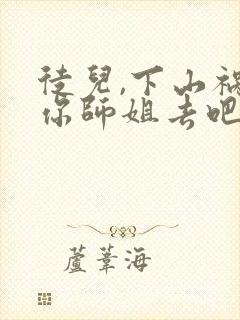 徒兒,下山禍
你師姐去吧
蘆葦海